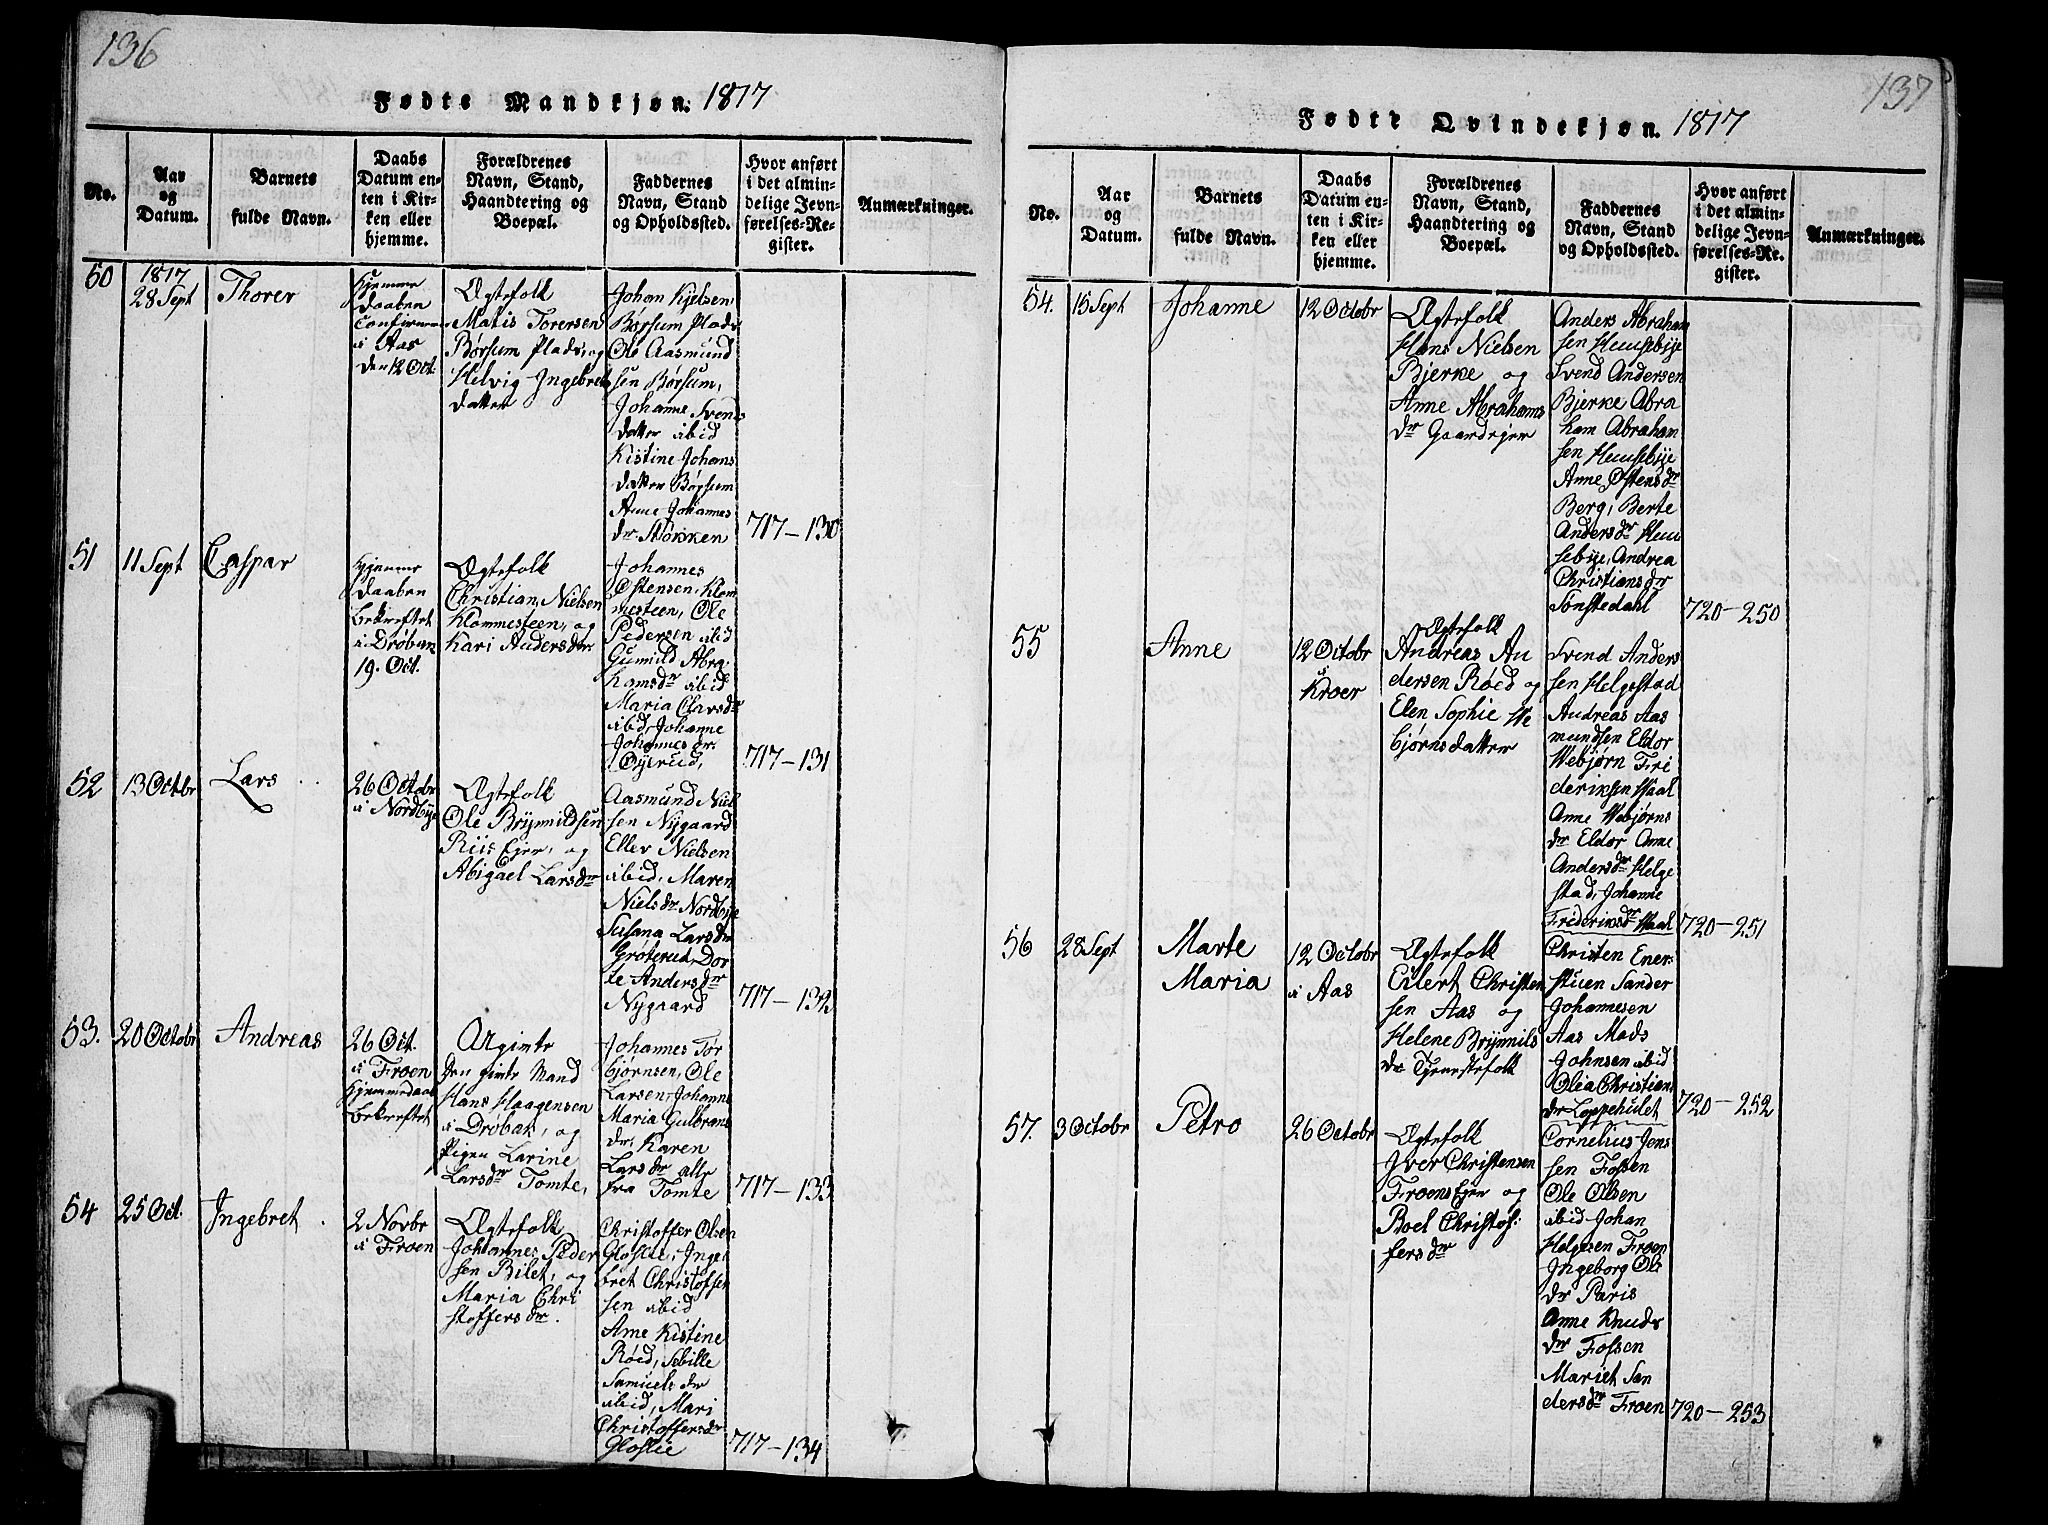 136
Fødte Mandkjøn. 1817
No.
Aar
og
Datum.
Barnets
fulde Navn.
Daabs
Datum en-
ten i Kir-
ken eller
hjemme.
Forældrenes
Navn, Stand,
Haandtering og
Boepæl.
Faddernes
Navn, Stand
og Opholdssted.
Hvor anført
i det almin-
delige Jevn-
førelses-Re-
gister.
Anmærkninger.
50
1817
28 Sept
Thorer
hjemme
daaben
Confirme
i Aas
den 12 Oct.
Ægtefolk
Matis Torersen
Børsum Plads, og
Helvig Ingebrets
datter
Johan Kjelsen
Børsum Plads
Ole Aasmund
sen Børsum,
Johanne Svends
datter ibid
Kistine Johans
datter Børsum
Anne Johannes
dr Støkken
717-130
51
11 Sept
Caspar
hjemme
daaben
bekreftet
i Drøbak
19. Oct.
Ægtefolk
Christian Nielsen
Klommesteen, og
Kari Andersdr
Johannes
Østensen, Klom
mesteen, Ole
Pedersen ibid
Gunild Abra
hamsdr ibid
Maria Clavsdr
ibid, Johanne
Johannesdr
Øyerud,
717-131
52
13 Octbr
Lars
26 Octobr
i Nordbye
Ægtefolk
Ole Brynnildsen
Riis Ejer, og
Abigael Larsdr
Aasmund Niel
sen Nygaard
Ellev Nielsen
ibid, Maren
Nielsdr Nordbye
Susana Larsdr
Grøterud, Dor
te Andersdr
Nygaard
717-132
53.
20 Octobr
Andreas
26 Oct.
i Froen
hjemmedaab
bekreftet
Uægimte
den gimte Mand
Hans Haagensen
i Drøbak, og
Pigen Larine
Larsdr Tomte,
Johannes Tor
bjørnsen, Ole
Larsen, Johanne
Maria Gulbrans
dr, Karen
Larsdr alle
fra Tomte
717-133
54
25 Oct.
Ingebret
2 Novbr
i Froen
Ægtefolk
Johannes Peder
sen Bilet, og
Maria Chri
stoffersdr.
Christoffer Olsen
Gloslie, Inge
bret Christofsen
sen ibid
Anne Kistine
Røed, Sebille
Samuelsdr
ibid, Mari
Christoffersdr
Gloslie
717-134
137
Fødte Qvindekjøn. 1817
No.
Aar
og
Datum.
Barnets
fulde Navn.
Daabs
Datum en-
ten i Kir-
ken eller
hjemme.
Forældrenes
Navn, Stand,
Haandtering og
Boepæl.
Faddernes
Navn, Stand
og Opholdssted.
Hvor anført
i det almin-
delige Jevn-
førelses-Re-
gister.
Anmærkninger.
54.
15 Sept
Johanne
12 Octobr
Ægtefolk
Hans Nielsen
Bjerke og
Anne Abrahams
dr Gaardejer
Anders Abraham
sen Heusebye
Svend Andersen
Bjerke Abra
ham Abraham
sen Heusebye
Anne Østensdr
Berg, Berte
Andersdr Heu
sebye, Andrea
Christiansdr
Sønstedahl
720-250
55
Anne
12 Octobr
i
Kroer
Ægtefolk
Andreas An
dersen Røed og
Elen Sophie We
bjørnsdatter
Svend Anders
sen Helgestad
Andreas Aas
mundsen Eldor
Webjørn Fri
deriksen Haal
Anne Webjørns
dr Eldor Anne
Andersdr Helge
stad, Johanne
Frederiksdr Haal
720-251
56
28 Sept
Marte
Maria
12 Octobr
i Aas
Ægtefolk
Eilert Christen
sen Aas og
Helene Brynnils
dr Tjenestefolk
Christen Ener-
stuen Sander
Johannesen
Aas Mads
Johnsen ibid
Olea Christians
dr Loppehulet
720-252
57.
3 Octobr
Petro
26 Octobr
Ægtefolk
Iver Christensen
Froens Ejer og
Boel Christof:
fersdr
Cornelius Jens
sen Fossen
Ole Olsen
ibid Johan
Helgesen Froen
Ingeborg Ole
dr Paris
Anne Knuds
dr Fossen
Mariet San
dersdr Froen
720-253